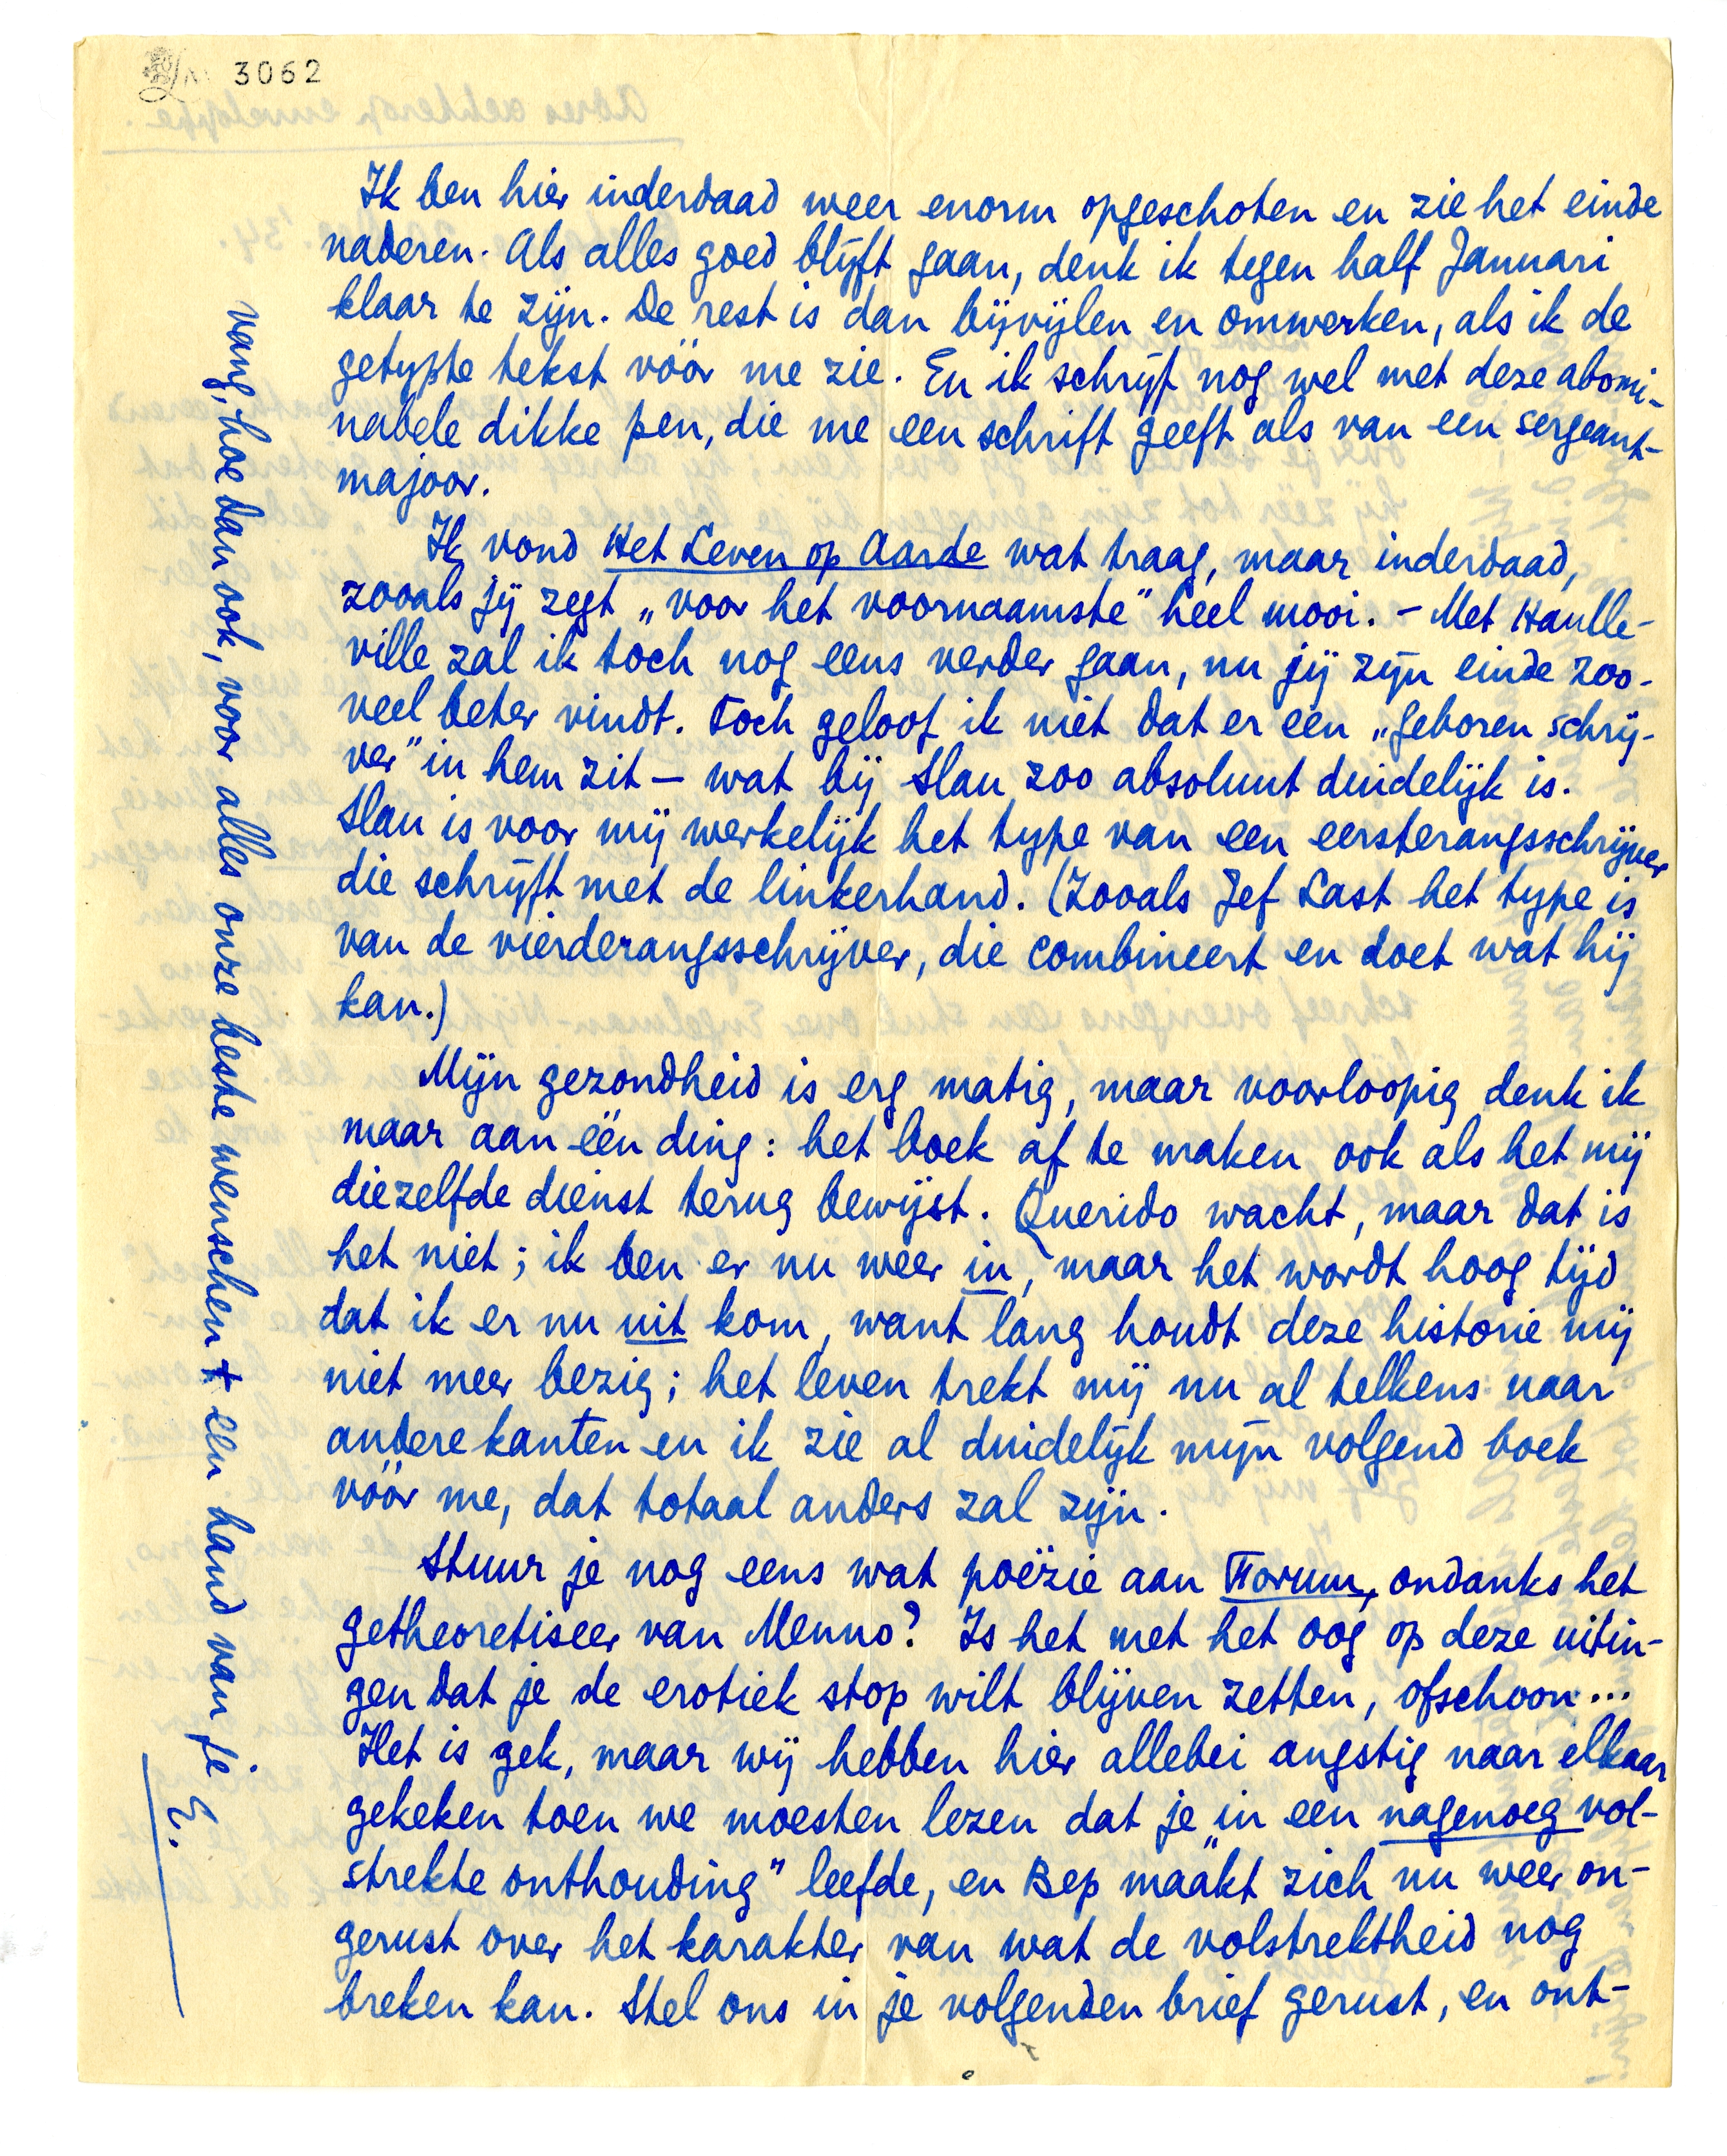 3062
Ik ben hier inderdaad weer enorm opgeschoten en zie het einde
naderen. Als alles goed blijft gaan, denk ik tegen half Januari
klaar te zijn. De rest is dan bijvijlen en omwerken, als ik de
getypte tekst vóór me zie. En ik schrijf nog wel met deze abomi-
nabele dikke pen, die me een schrift geeft als van een sergeant-
majoor.
Ik vond Het Leven op Aarde wat traag, maar inderdaad,
zooals jij zegt „voor het voornaamste" heel mooi. – Met Haulle-
ville zal ik toch nog eens verder gaan, nu jij zijn einde zoo-
veel beter vindt. Toch geloof ik niet dat er een „geboren schrij-
ver" in hem zit – wat bij Slau zoo absoluut duidelijk is.
Slau is voor mij werkelijk het type van een eersterangsschrijver
die schrijft met de linkerhand. (Zooals Jef Last het type is
van de vierderangsschrijver, die combineert en doet wat hij
kan.)
Mijn gezondheid is erg matig, maar voorloopig denk ik
maar aan één ding: het boek af te maken ook als het mij
diezelfde dienst terug bewijst. Querido wacht, maar dat is
het niet; ik ben er nu weer in, maar het wordt hoog tijd
dat ik er nu uit kom, want lang houdt deze historie mij
niet meer bezig; het leven trekt mij nu al telkens naar
andere kanten en ik zie al duidelijk mijn volgend boek
vóór me, dat totaal anders zal zijn.
Stuur je nog eens wat poëzie aan Forum, ondanks het
getheoretiseer van Menno? Is het met het oog op deze uitin-
gen dat je de erotiek stop wilt blijven zetten, ofschoon...
Het is gek, maar wij hebben hier allebei angstig naar elkaar
gekeken toen we moesten lezen dat je „in een nagenoeg vol-
strekte onthouding" leefde, en Bep maakt zich nu weer on-
gerust over het karakter van wat de volstrektheid nog
breken kan. Stel ons in je volgenden brief gerust, en ont-
vang, hoe dan ook, voor alles onze beste wenschen + een hand van je
E.